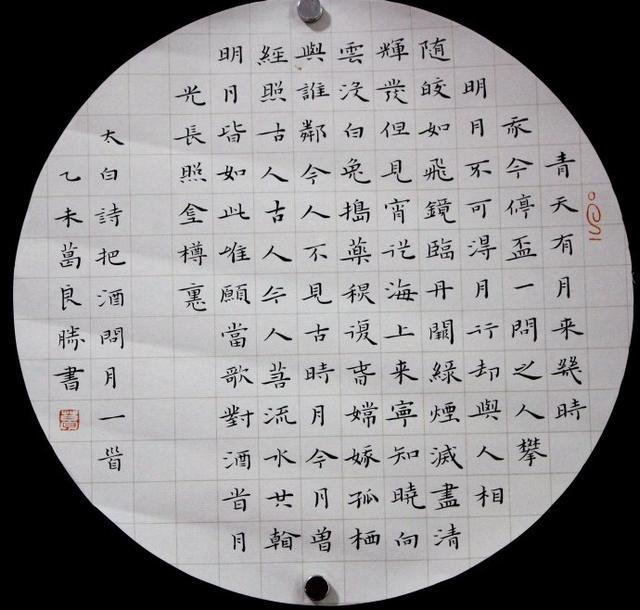 青天有月来幾時
我今停盃一問之人攀
明月不可淂月行却與人相
随皎如飛鏡臨丹闕綠煙滅盡清
輝發但見宵從海上来寧知曉向
雲没白兔搗藥秋復春嫦娥孤栖
與誰鄰今人不見古時月今月曾
經照古人古人今人若流水共看
明月皆如此唯願當歌對酒時月
光長照金樽裏
太白詩把酒問月一首
乙未葛良勝書